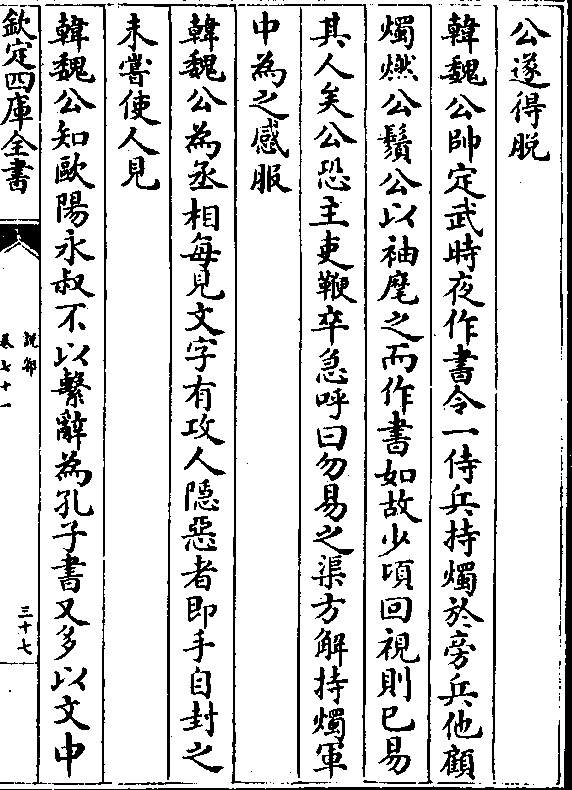 公遂得脱
韓魏公帥定武時夜作書令一侍兵持燭於旁兵他顧
燭燃公鬚公以袖麾之而作書如故少頃回視則已易
其人矣公恐主吏鞭卒急呼曰勿易之渠方解持燭軍
中為之感服
韓魏公為丞相每見文字有攻人隱惡者即手自封之
未嘗使人見
韓魏公知歐陽永叔不以繫辭為孔子書又多以文中
欽定四庫全書
說郛
卷七十一
三十七